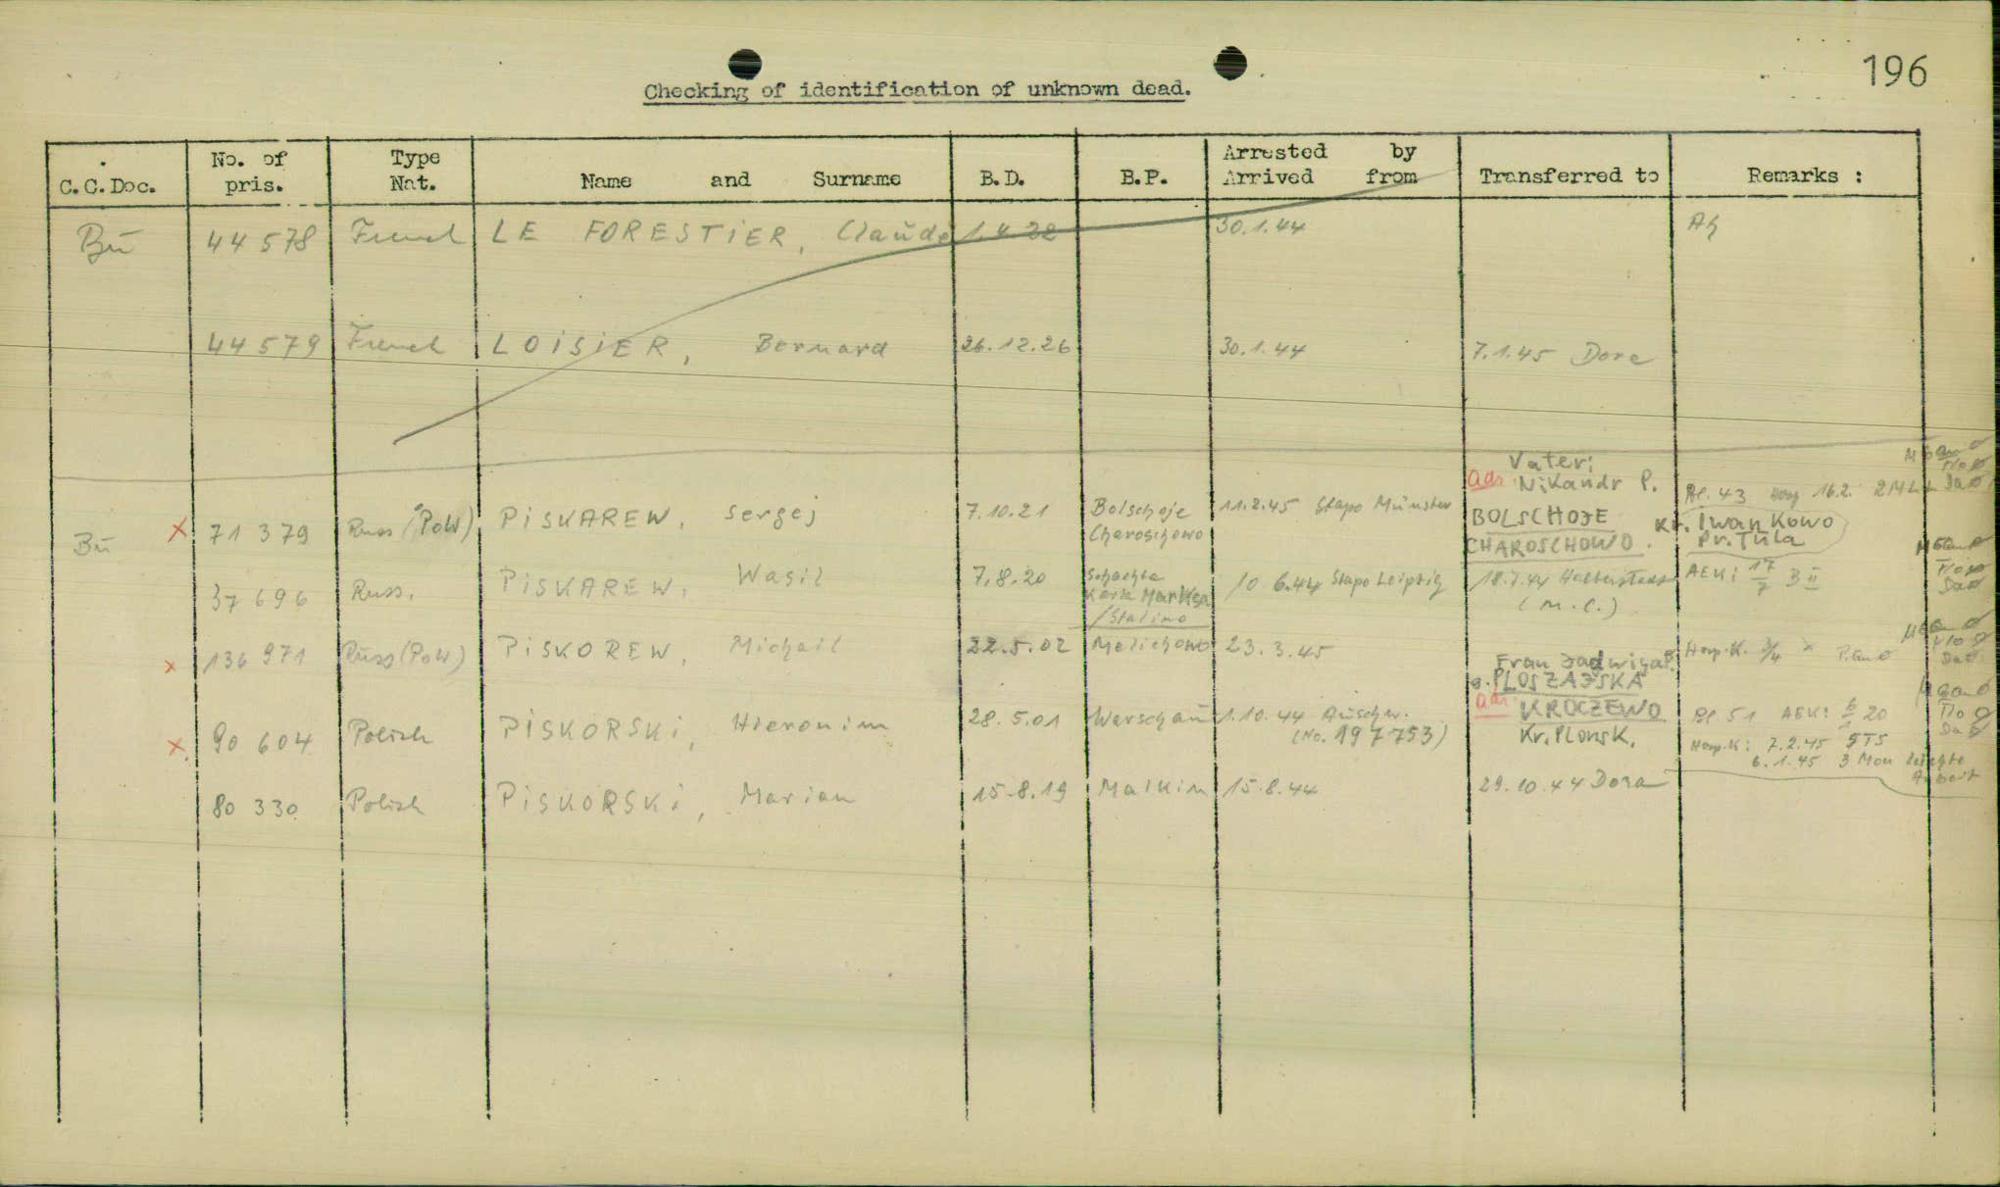 196
Checking of identification of unknown dead.
C.C.Doc. No. of pris. Type Nat. Name and Surname B.D. B.P. Arrested by Arrived from Transferred to Remarks :
Bu 44 578 French LE FORESTIER, Claude 1.4.22 30.1.44
44 579 French LOISIER, Bernard 26.12.26 30.1.44 7.1.45 Dora
Vater:
adr Nikandr P.
Bu x 71 379 Russ (PoW) PISKAREW, Sergej 7.10.21 Bolschoje 11.2.45 Stapo Münster BOLSCHOJE Kr. Iwankowo
Charoschowo CHAROSCHOWO. Pr. Tula
37 696 Russ. PISKAREW, Wasil 7.8.20 Schachta 10.6.44 Stapo Leipzig 18.7.44 Halberstadt AEK: 17/7 B II
Karla Marksa (M.C.)
/Stalino
x 136 971 Russ (PoW) PISKOREW, Michail 22.5.02 Melichowo 23.3.45
Frau Jadwiga P.
PLOSZAJSKA
x 90 604 Polish PISKORSKI, Hieronim 28.5.01 Warschau 1.10.44 Auschw. adr KROCZEWO Bl 51 AEK:
(No. 197753) Kr. Plonsk. Hosp.K: 7.2.45
6.1.45 3 Mon leichte Arbeit
80 330 Polish PISKORSKI, Marian 15.8.19 Malkin 15.8.44 29.10.44 Dora